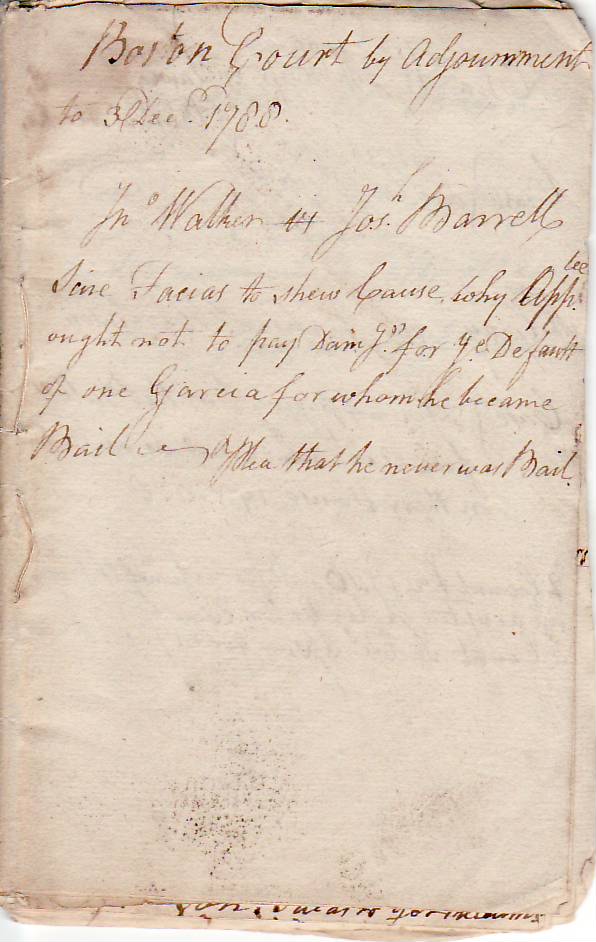 Boston Court by Adjournment
to 3 Dec.r 1788.
Jn.o Walker vs Jos.h Barrell
Scire Facias to shew Cause, why App.lee
ought not to pay Dam.gs for ye Default
of one Garcia for whom he became
Bail — Plea that he never was Bail.